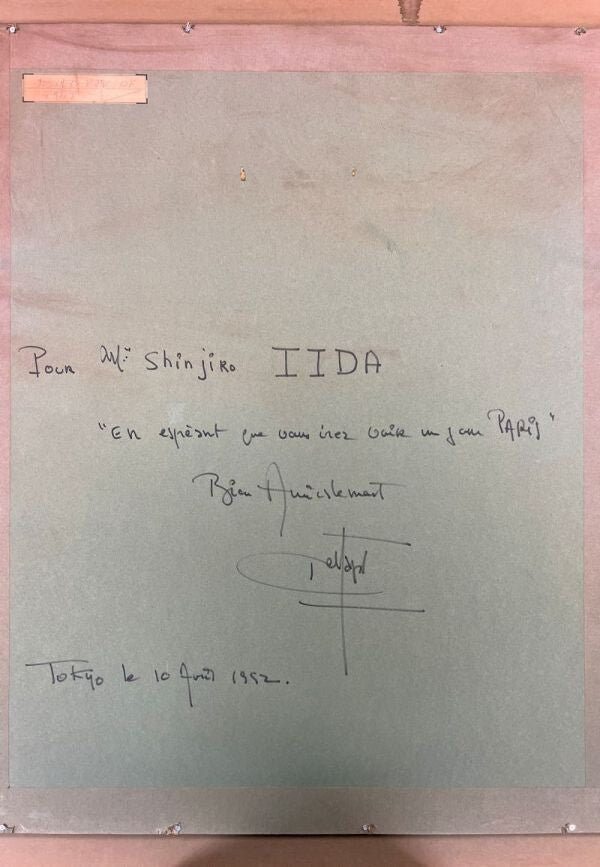 Pour Mr. Shinjiro IIDA
"En espérant que vous irez voir un jour PARIS"
Bien Amicalement
Tokyo le 10 Août 1992.